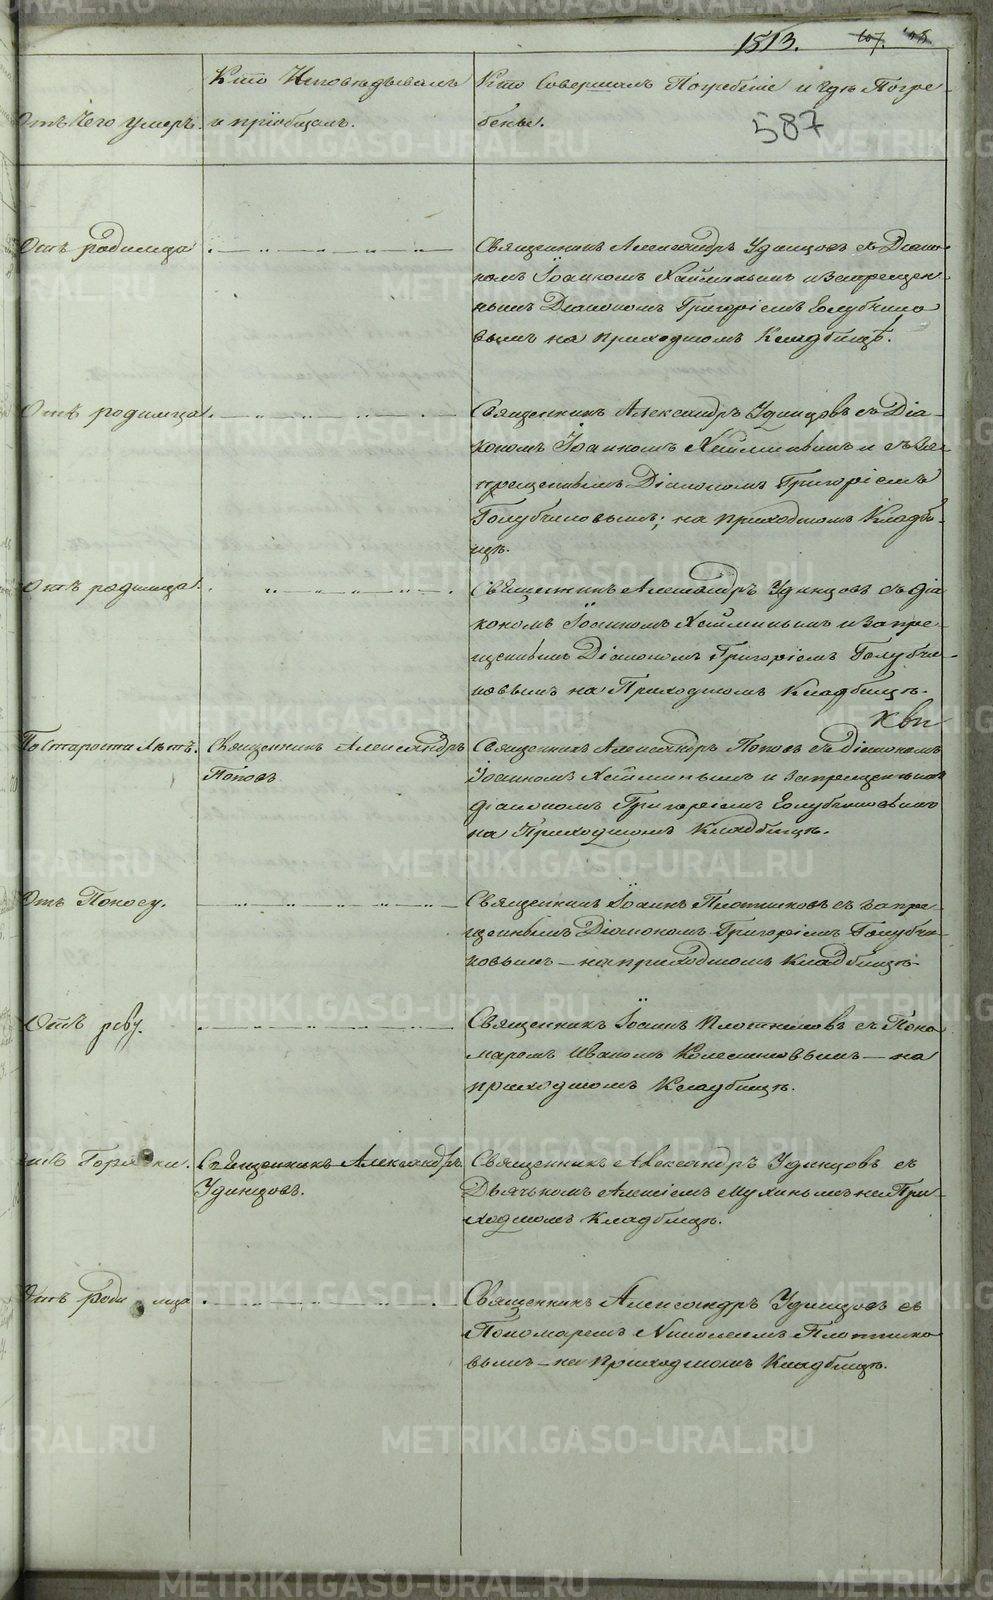 1513.
587
Отъ Чего умеръ.
Кто Исповѣдывалъ
и пріобщалъ.
Кто Совершалъ Погребеніе и гдѣ Погре-
бены.
Отъ родимца
Священникъ Александръ Удинцовъ съ Діако-
номъ Іоанномъ Хайминымъ и Запрещен-
нымъ Діакономъ Григоріемъ Голубчико
вымъ на приходскомъ Кладбищѣ.
Отъ родимца.
Священникъ Александръ Удинцовъ съ Діа-
кономъ Іоанномъ Хайминымъ и съ За-
прещеннымъ Діакономъ Григоріемъ
Голубчиковымъ; на приходскомъ Кладби-
щѣ.
Отъ родимца.
Священникъ Александръ Удинцовъ съ діа
кономъ Іоанномъ Хайминымъ и Запре-
щеннымъ Діакономъ Григоріемъ Голубчи-
ковымъ на Приходскомъ Кладбищѣ.
По старости лѣтъ.
Священникъ Александръ
Поповъ
Священникъ Александръ Поповъ съ Діакономъ
Іоанномъ Хайминымъ и запрещеннымъ
діакономъ Григоріемъ Голубчиковымъ
на Приходскомъ Кладбищѣ.
Отъ Поносу.
Священникъ Іоаннъ Плотниковъ съ запре-
щеннымъ Діакономъ Григоріемъ Голубчи-
ковымъ — на приходскомъ Кладбищѣ.
Отъ рву.
Священникъ Іоаннъ Плотниковъ съ Поно
маремъ Иваномъ Колесниковымъ — на
приходскомъ Кладбищѣ.
Отъ Горячки.
Священникъ Александръ
Удинцовъ.
Священникъ Александръ Удинцовъ съ
Дьячкомъ Алексіемъ Мухинымъ на При-
ходскомъ Кладбищѣ.
Отъ родимца
Священникъ Александръ Удинцовъ съ
Пономаремъ Николаемъ Плотнико
вымъ — на Приходскомъ Кладбищѣ.
METRIKI.GASO-URAL.RU